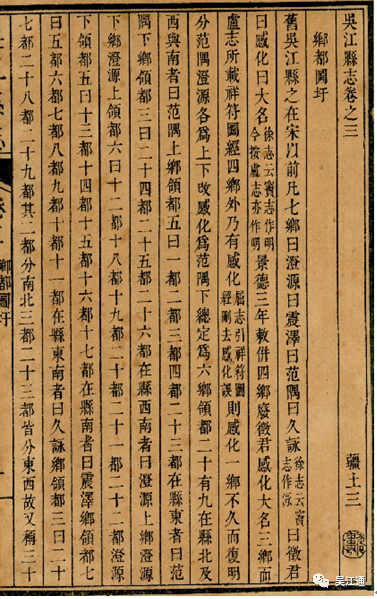 吳江縣志卷之三 疆土三
鄉都圖圩
舊吳江縣之在宋以前凡七鄉曰澄源曰震澤曰范隅曰久詠徐志云竇志作泳曰徵君
曰感化曰大名徐志云竇志作明今按盧志亦作明景德三年敕併四鄉廢徵君感化大名三鄉而
盧志所載祥符圖經四鄉外乃有感化屈志引祥符圖經刪去感化誤則感化一鄉不久而復明
分范隅澄源各為上下改感化為范隅下總定為六鄉領都二十有九在縣北及
西與南者曰范隅上鄉領都五曰一都二都三都四都二十三都在縣東者曰范
隅下鄉領都三曰二十四都二十五都二十六都在縣西南者曰澄源上鄉澄源
下鄉澄源上領都六曰十二都十八都十九都二十都二十一都二十二都澄源
下領都五曰十三都十四都十五都十六都十七都在縣南者曰震澤鄉領都七
曰五都六都七都八都九都十都十一都在縣東南者曰久詠鄉領都三曰二十
七都二十八都二十九都其二都分南北三都二十三都皆分東西故又稱三十
鄉都圖圩
吴江通